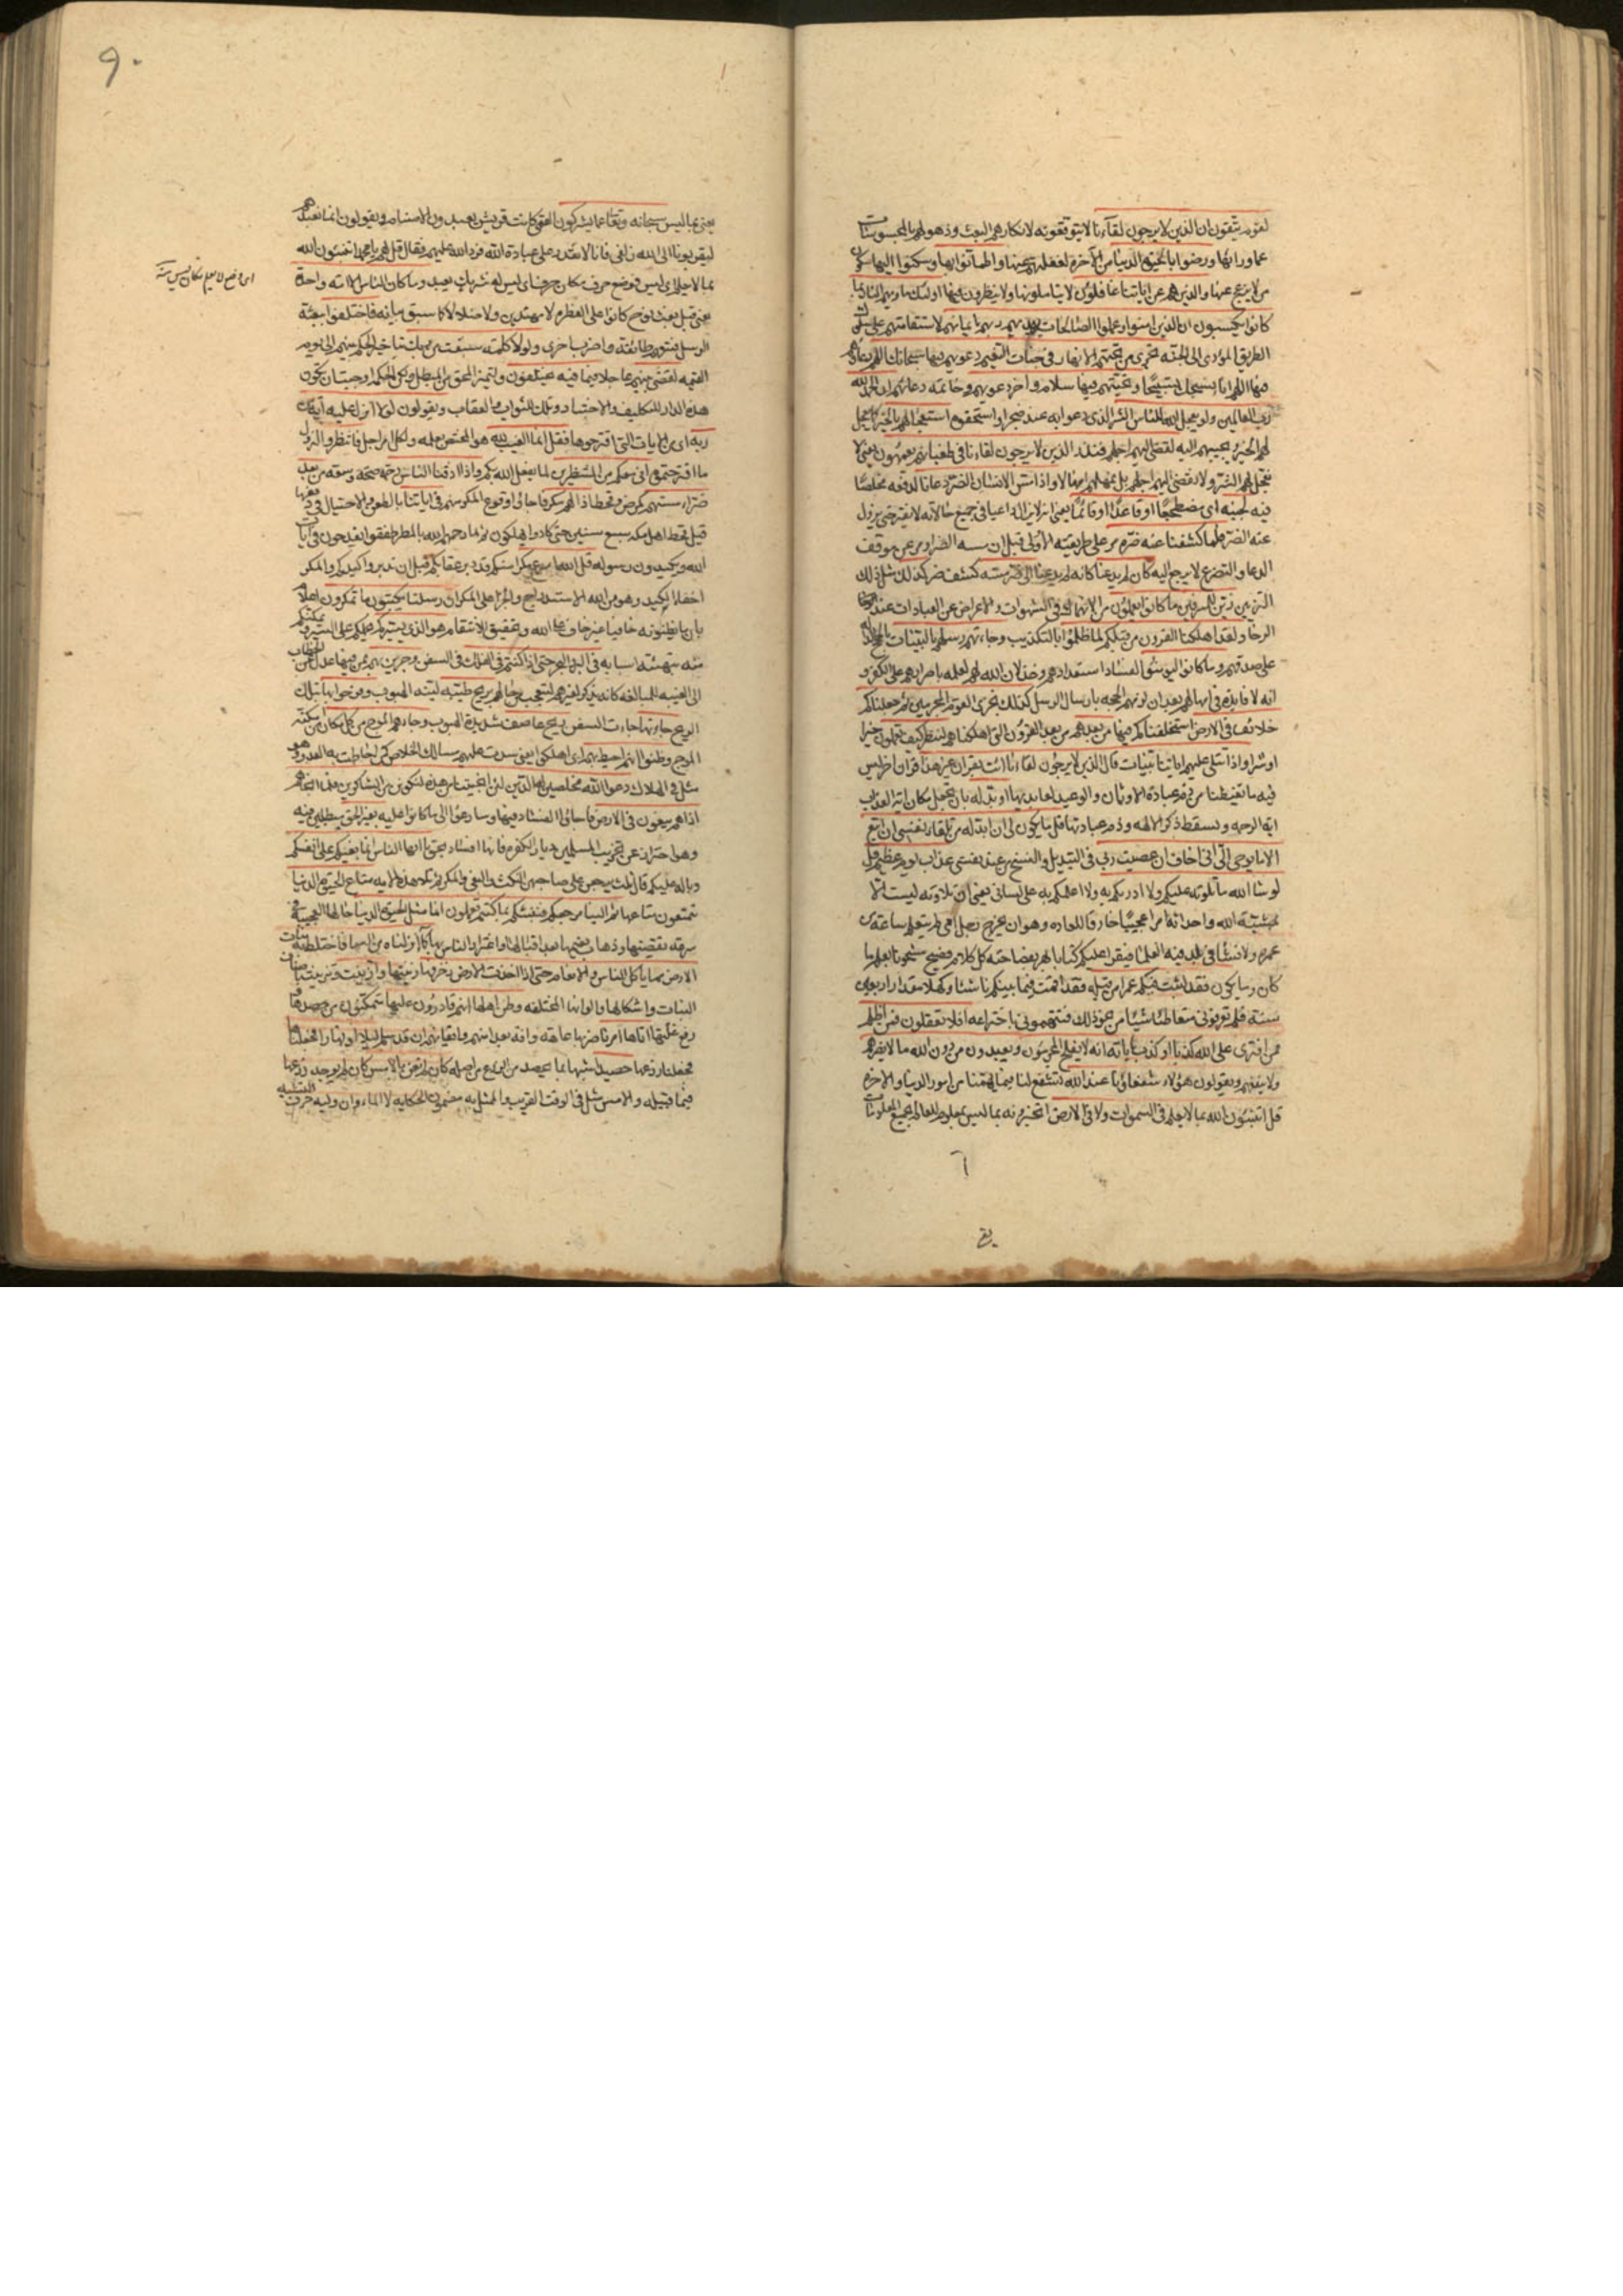 لقوم يتقون ان الذين لا يرجون لقآءنا لا يتوقعونه لانكارهم البعث وذهولهم بالمحسوسات
عما ورائها ورضوا بالحيوة الدنيا من الآخرة لغفلتهم عنها واطمانوا بها وسكنوا اليها سكون
من لا يزعج عنها والذين هم عن اياتنا غافلون لا يتاملونها ولا ينظرون فيها اولئك ماويهم النار بما
كانوا يكسبون ان الذين امنوا وعملوا الصالحات يهديهم ربهم بايمانهم لاستقامتهم على سلوك
الطريق المؤدى الى الجنه تجرى من تحتهم الانهار فى جنات النعيم دعويهم فيها سبحانك اللهم
فيها اللهم انا نسبحك تسبيحًا وتحيتهم فيها سلام واخر دعويهم وخاتمة دعائهم ان الحمد لله
رب العالمين ولو يعجل الله للناس الشر الذى دعوا به عند ضجر او استحقوه استعجالهم بالخير كما يعجل
لهم الخير ويجيبهم اليه لقضى اليهم اجلهم فنذر الذين لا يرجون لقاءنا فى طغيانهم يعمهون يعنى لا
نعجل لهم الشر ولا نقضى اليهم اجلهم بل نمهلهم امهالا واذا مس الانسان الضر دعانا لدفعه مخلصًا
فيه لجنبه اى مضطجعًا او قاعدًا او قائمًا يعنى انه لا يزال داعيا فى جميع حالاته لا يفتر حتى يزول
عنه الضر فلما كشفنا عنه ضره مر على طريقته الاولى قبل ان مسه الضر او مر عن موقف
الدعا والتضرع لا يرجع اليه كان لم يدعنا كانه لم يدعنا الى ضر مسه كشف ضر كذلك مثل ذلك
التزيين زين للمسرفين ما كانوا يعملون من الانهماك فى الشهوات والاعراض عن العبادات عند
الرخا ولقد اهلكنا القرون من قبلكم لما ظلموا بالتكذيب وجاءتهم رسلهم بالبينات بالحجج الدالة
على صدقهم وما كانوا ليؤمنوا لفساد استعدادهم وخذلان الله لهم لعلمه باصرارهم على الكفر و
انه لا فايدة فى امهالهم بعد ان لزمهم الحجه بارسال الرسل كذلك نجزى القوم المجرمين ثم جعلناكم
خلائف فى الارض استخلفناكم فيها من بعدهم من بعد القرون التى اهلكناهم لننظر كيف تعملون خيرا
او شرا واذا تتلى عليهم اياتنا بينات قال الذين لا يرجون لقاءنا ائت بقران غير هذا قران اخر ليس
فيه ما يغيظنا من ذم عبادة الاوثان والوعيد لعابديها او بدله بان تجعل مكان اية العذاب
اية الرحمه وتسقط ذكر الالهه وذم عبادتها قل ما يكون لى ان ابدله من تلقاء نفسى ان اتبع
الا ما يوحى الى انى اخاف ان عصيت ربى فى التبديل والنسخ من عند نفسى عذاب يوم عظيم قل
لو شا الله ما تلوته عليكم ولا ادريكم به ولا اعلمكم به على لسانى يعنى ان تلاوته ليست الا
بمشية الله واحداثه امرا عجيبًا خارقا للعاده وهو ان يخرج رجل امى لم يتعلم ساعة من
عمره ولا نشأ فى بلد فيه العلما فيقرا عليكم كتابا بهر بفصاحته كل كلام فصيح مشحونا بعلم ما
كان وما يكون فقد لبثت فيكم عمرا من قبله فقد اقمت فيما بينكم ناشئا وكهلا مقدار اربعين
سنة فلم تعرفونى متعاطيا شيئا من نحو ذلك فتتهمونى باختراعه افلا تعقلون فمن اظلم
ممن افترى على الله كذبا او كذب باياته انه لا يفلح المجرمون ويعبدون من دون الله ما لا يضرهم
ولا ينفعهم ويقولون هؤلاء شفعاؤنا عند الله تشفع لنا فيما يهمنا من امور الدنيا والاخره
قل اتنبئون الله بما لا يعلم فى السموات ولا فى الارض اتخبرونه بما ليس بمعلوم للعالم بجميع المعلومات
٩٠
يعنى بما ليس سبحانه وتعالى عما يشركون القمى كانت قريش يعبدون الاصنام ويقولون انما نعبدهم
ليقربونا الى الله زلفى فانا لا نقدر على عبادة الله فرد الله عليهم فقال قل لهم يا محمد اتنبئون الله
بما لا يعلم اى ليس فوضع حرف مكان حرف اى ليس له شريك يعبد وما كان الناس الا امة واحدة
يعنى قبل بعث نوح كانوا على الفطرة لا مهتدين ولا ضلالا كما سبق بيانه فاختلفوا ببعثة
الرسل فتبعتهم طائفة واضرب اخرى ولولا كلمة سبقت من ربك بتاخير الحكم بينهم الى يوم
القيمه لقضى بينهم عاجلا فيما فيه يختلفون ولتميز المحق من المبطل ولكن الحكمه اوجبت ان تكون
هذه الدار للتكليف والاختبار وتلك للثواب والعقاب ويقولون لولا انزل عليه اية من
ربه اى من الايات التى اقترحوها فقل انما الغيب لله هو المختص بعلمه ولكل امر اجل فانتظروا لنزول
ما اقترحتموه انى معكم من المنتظرين لما يفعل الله بكم واذا اذقنا الناس رحمة صحة وسعه من بعد
ضراء مستهم كمرض وقحط اذا لهم مكر فاجاؤا وقوع المكر منهم فى اياتنا بالطعن والاحتيال فى دفعها
قيل قحط اهل مكه سبع سنين حتى كادوا يهلكون ثم لما رحمهم الله بالمطر طفقوا يقدحون فى آيات
الله ويكيدون رسوله قل الله اسرع مكرا منكم قد دبر عقابكم قبل ان تدبروا كيدكم والمكر
اخفاء الكيد وهو من الله الاستدراج والجزا على المكر ان رسلنا يكتبون ما تمكرون اعلام
بان ما يظنونه خافيا غير خاف على الله وتحقيق الانتقام هو الذى يسيركم يحملكم على السير ويمكنكم
منه بتهيئة اسبابه فى البر والبحر حتى اذا كنتم فى الفلك فى السفن وجرين بهم بمن فيها عدل عن الخطاب
الى الغيبه للمبالغه كانه يذكر لغيرهم ليتعجب من حالهم بريح طيبة لينة الهبوب وفرحوا بها بتلك
الريح جاءتها جاءت السفن ريح عاصف شديدة الهبوب وجاءهم الموج من كل مكان من امكنة
الموج وظنوا انهم احيط بهم اى اهلكوا يعنى سدت عليهم مسالك الخلاص كمن احاطت به العدو وهو
مثل فى الهلاك دعوا الله مخلصين له الدين لئن انجيتنا من هذه لنكونن من الشاكرين فلما انجاهم
اذا هم يبغون فى الارض فاجاؤا الفساد فيها وسارعوا الى ما كانوا عليه بغير الحق مبطلين فيه
وهو احتراز عن تخريب المسلمين ديار الكفره فانها افساد بحق يا ايها الناس انما بغيكم على انفسكم
وباله عليكم قال ثلث يرجعن على صاحبهن النكث والبغى والمكر ثم تلا هذه الايه متاع الحيوة الدنيا
تتمتعون متاعها ثم الينا مرجعكم فننبئكم بما كنتم تعملون انما مثل الحيوة الدنيا حالها العجيبة فى
سرعة تقضيها وذهاب نعيمها بعد اقبالها واغترار الناس بها كماء انزلناه من السما فاختلط به نبات
الارض مما ياكل الناس والانعام حتى اذا اخذت الارض زخرفها زينتها وازينت وتزينت باصناف
النبات واشكالها والوانها المختلفه وظن اهلها انهم قادرون عليها متمكنون من حصدها و
رفع غلتها اتاها امرنا ضربها عاهة وافة بعد امنهم وايقانهم ان قد سلم ليلا او نهارا فجعلناها
فجعلنا زرعها حصيدا شبيها بما يحصد من الزرع من اصله كان لم تغن بالامس كان لم يوجد زرعها
فيما قبيله والامس مثل فى الوقت القريب والممثل به مضمون الحكايه لا الماء وان وليه حرف التشبيه